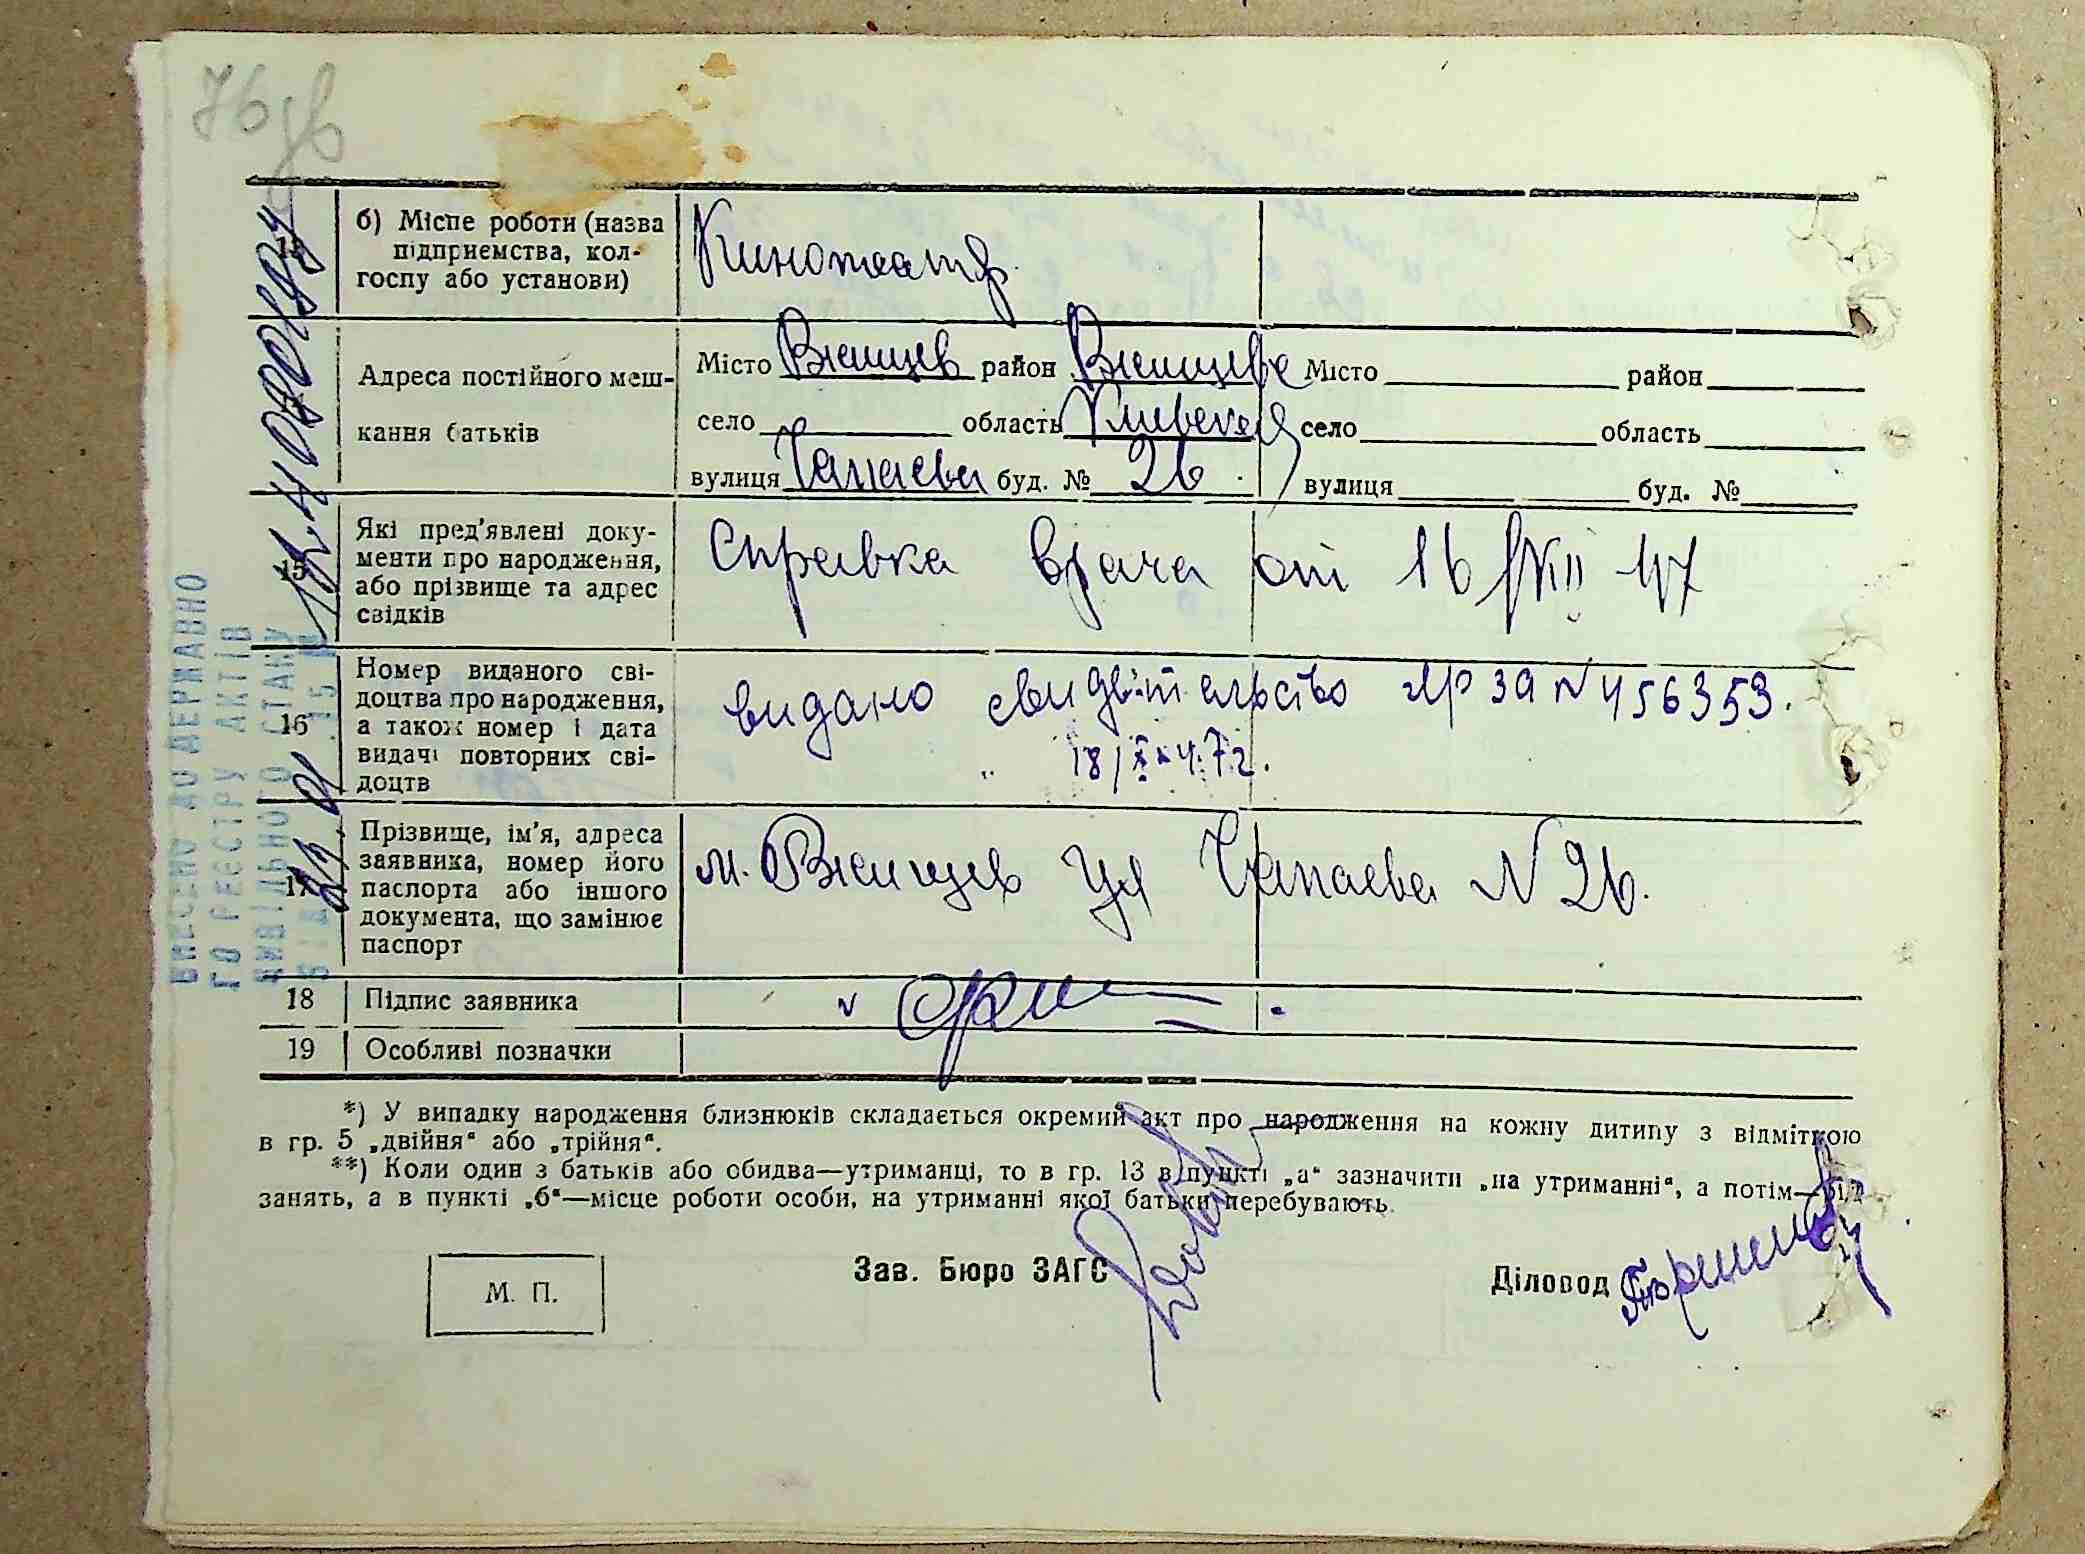 76
13
б) Місце роботи (назва
підприємства, кол-
госпу або установи)
Кинотеатр
Адреса постійного меш-
кання батьків
Місто район Місто район
село область село область
вулиця Чапаева буд. № 26 вулиця буд. №
15
Які пред'явлені доку-
менти про народження,
або прізвище та адрес
свідків
Справка врача от 16/XII 47
16
Номер виданого сві-
доцтва про народження,
а також номер і дата
видачі повторних сві-
доцтв
видано свидітельство ЯР ЗА N 456353.
18/X 47г.
17
Прізвище, ім'я, адреса
заявника, номер його
паспорта або іншого
документа, що замінює
паспорт
м. ул Чапаева N 26.
18 Підпис заявника
19 Особливі позначки
*) У випадку народження близнюків складається окремий акт про народження на кожну дитину з відміткою
в гр. 5 „двійня“ або „трійня“.
**) Коли один з батьків або обидва—утриманці, то в гр. 13 в пункті „а“ зазначити „на утриманні“, а потім—рід
занять, а в пункті „б“—місце роботи особи, на утриманні якої батьки перебувають.
М. П.
Зав. Бюро ЗАГС
Діловод
ВНЕСЕНО ДО ДЕРЖАВНО
ГО РЕЄСТРУ АКТІВ
ЦИВІЛЬНОГО СТАНУ